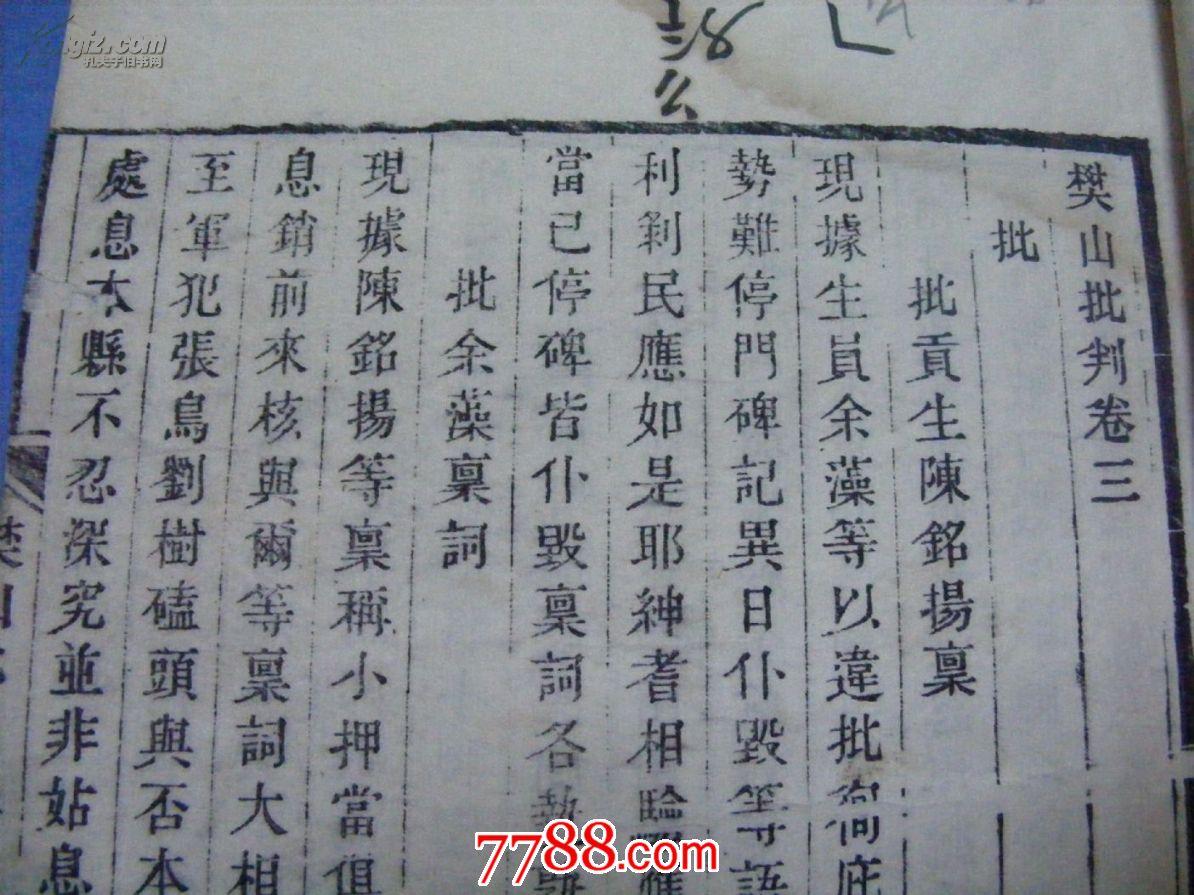 樊山批判卷三
批
批貢生陳銘揚稟
現據生員余藻等以違批徇庇
勢難停門碑記異日仆毀等語
利剝民應如是耶紳耆相驗
當已停碑皆仆毀稟詞各執
批余藻稟詞
現據陳銘揚等稟稱小押當俱
息銷前來核與爾等稟詞大相
至軍犯張鳥劉樹磕頭與否本
處息本縣不忍深究並非姑息
樊山
kongfz.com
孔夫子旧书网
7788.com